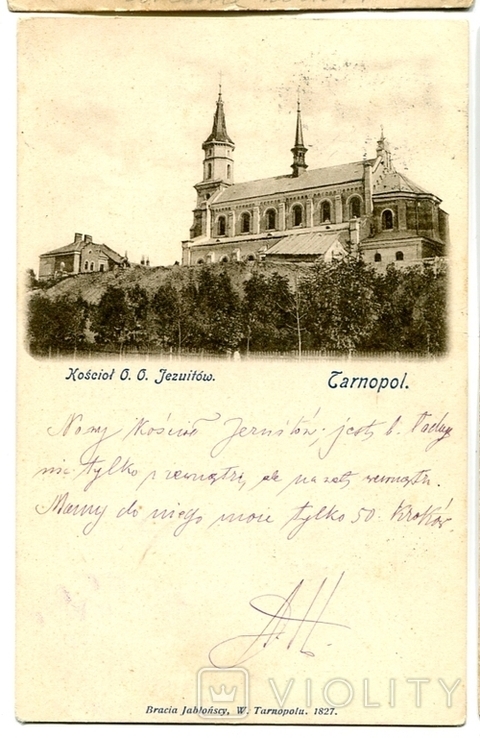 Kościoł O. O. Jezuitów.
Tarnopol.
Nowy Kościoł Jezuitów, jest b. ładny
nie tylko zewnątrz, ale na zew wewnątrz.
Mamy do niego może tylko 50. Kroków.
AH
Bracia Jabłońscy, W. Tarnopolu. 1827.
VIOLITY